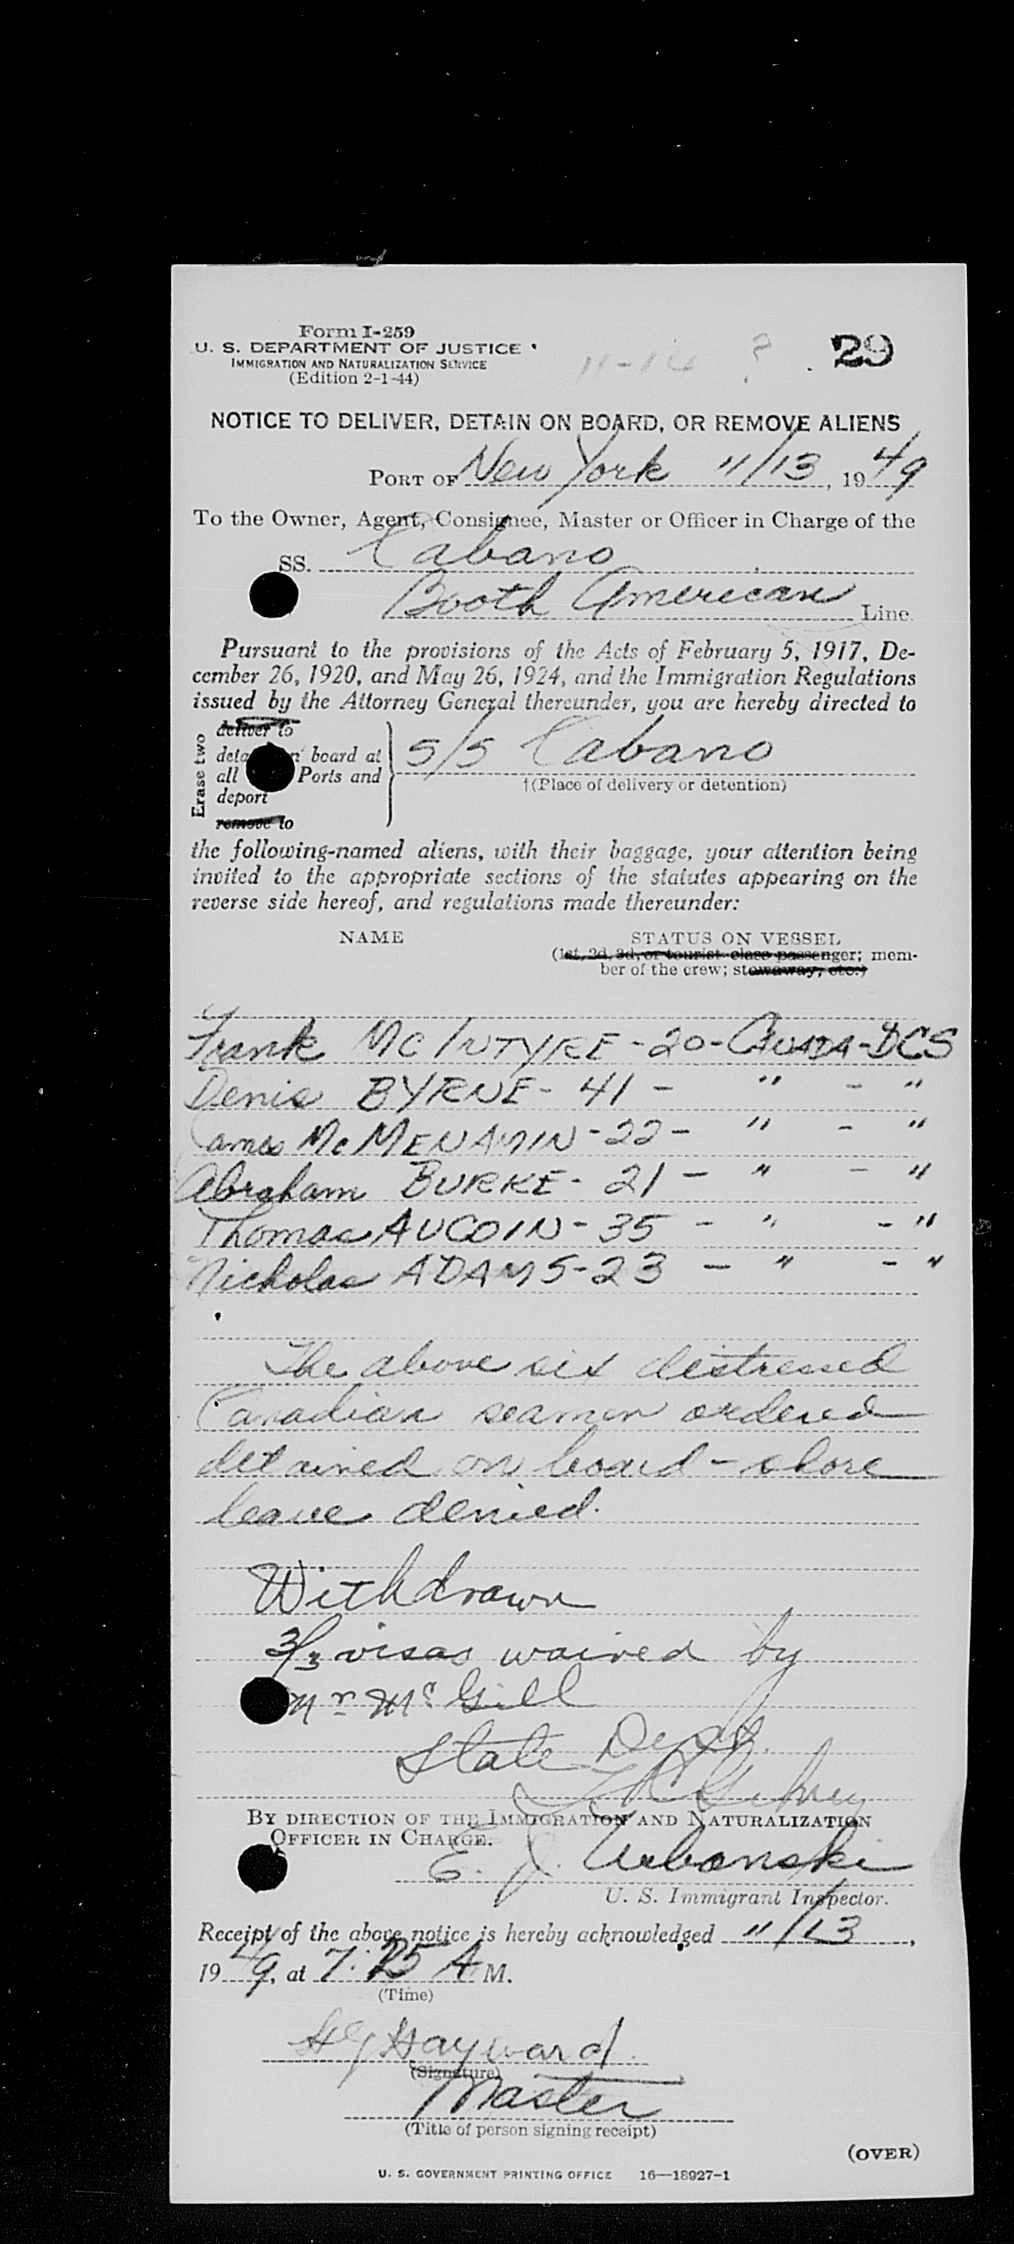 Form I-259
U. S. DEPARTMENT OF JUSTICE
IMMIGRATION AND NATURALIZATION SERVICE
(Edition 2-1-44)
11-14 ?
29
NOTICE TO DELIVER, DETAIN ON BOARD, OR REMOVE ALIENS
PORT OF New York 11/13, 1949
To the Owner, Agent, Consignee, Master or Officer in Charge of the
SS. Cabano
Booth American Line.
Pursuant to the provisions of the Acts of February 5, 1917, De-
cember 26, 1920, and May 26, 1924, and the Immigration Regulations
issued by the Attorney General thereunder, you are hereby directed to
Erase two
deliver to
board at
all Ports and
deport
remove to
S/S Cabano
†(Place of delivery or detention)
the following-named aliens, with their baggage, your attention being
invited to the appropriate sections of the statutes appearing on the
reverse side hereof, and regulations made thereunder:
NAME STATUS ON VESSEL
(1st, 2d, 3d, or tourist class passenger; mem-
ber of the crew; stowaway, etc.)
Frank McINTYRE - 20 - CANADA - DCS
Denis BYRNE - 41 - " - "
James McMENAMIN - 22 - " - "
Abraham BURKE - 21 - " - "
Thomas AUCOIN - 35 - " - "
Nicholas ADAMS - 23 - " - "
The above six distressed
Canadian seamen ordered
detained on board - shore
leave denied.
Withdrawn
3/3 visas waived by
Mr McGill
State Dept.
BY DIRECTION OF THE IMMIGRATION AND NATURALIZATION
OFFICER IN CHARGE.
E. J. Urbanski
U. S. Immigrant Inspector.
Receipt of the above notice is hereby acknowledged 11/13,
1949, at 7:25 A M.
(Time)
Hayward
(Signature)
Master
(Title of person signing receipt)
(OVER)
U. S. GOVERNMENT PRINTING OFFICE 16—18927-1